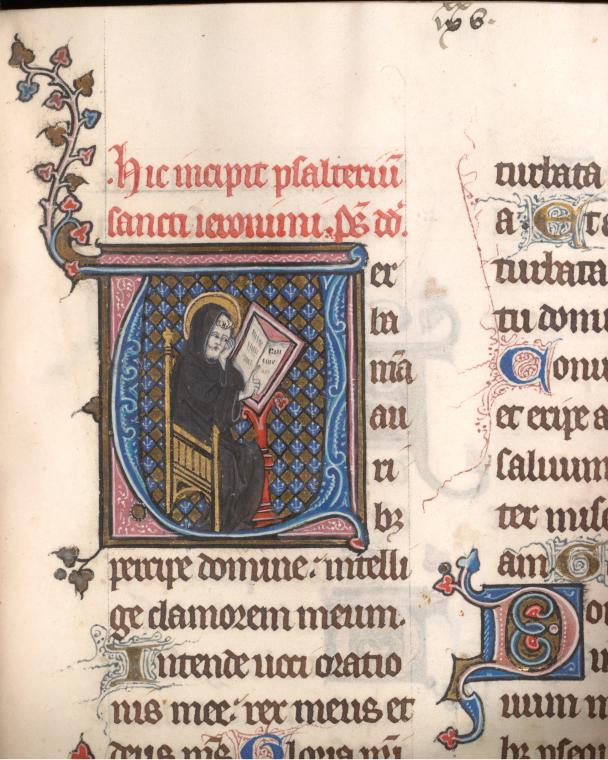 .hic incipit psalteriū
sancti ieronimi. ps dd.
Ver
ba
mea
au
ri
bꝫ
percipe domine: intelli
ge clamorem meum.
Intende uoci oratio
nis mee: rex meus et
deus ms Gloria
turbata
a Et
turbata
tu domi
Conu
et eripe a
saluum
ter mise
am
D
uum n
br